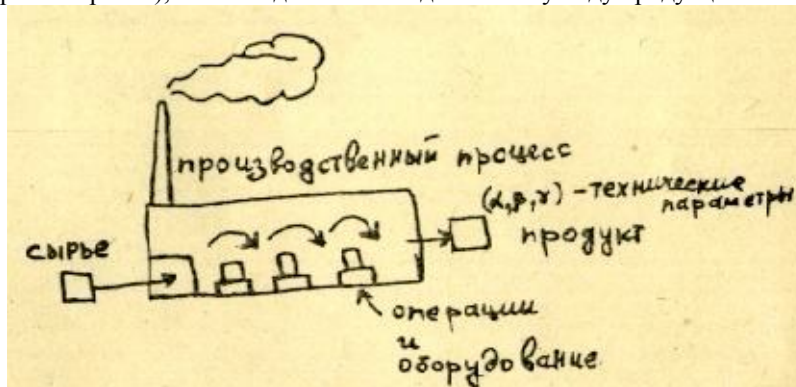 производственный процесс
(α,β,γ) - технические
параметры
продукт
сырье
операции
и
оборудование